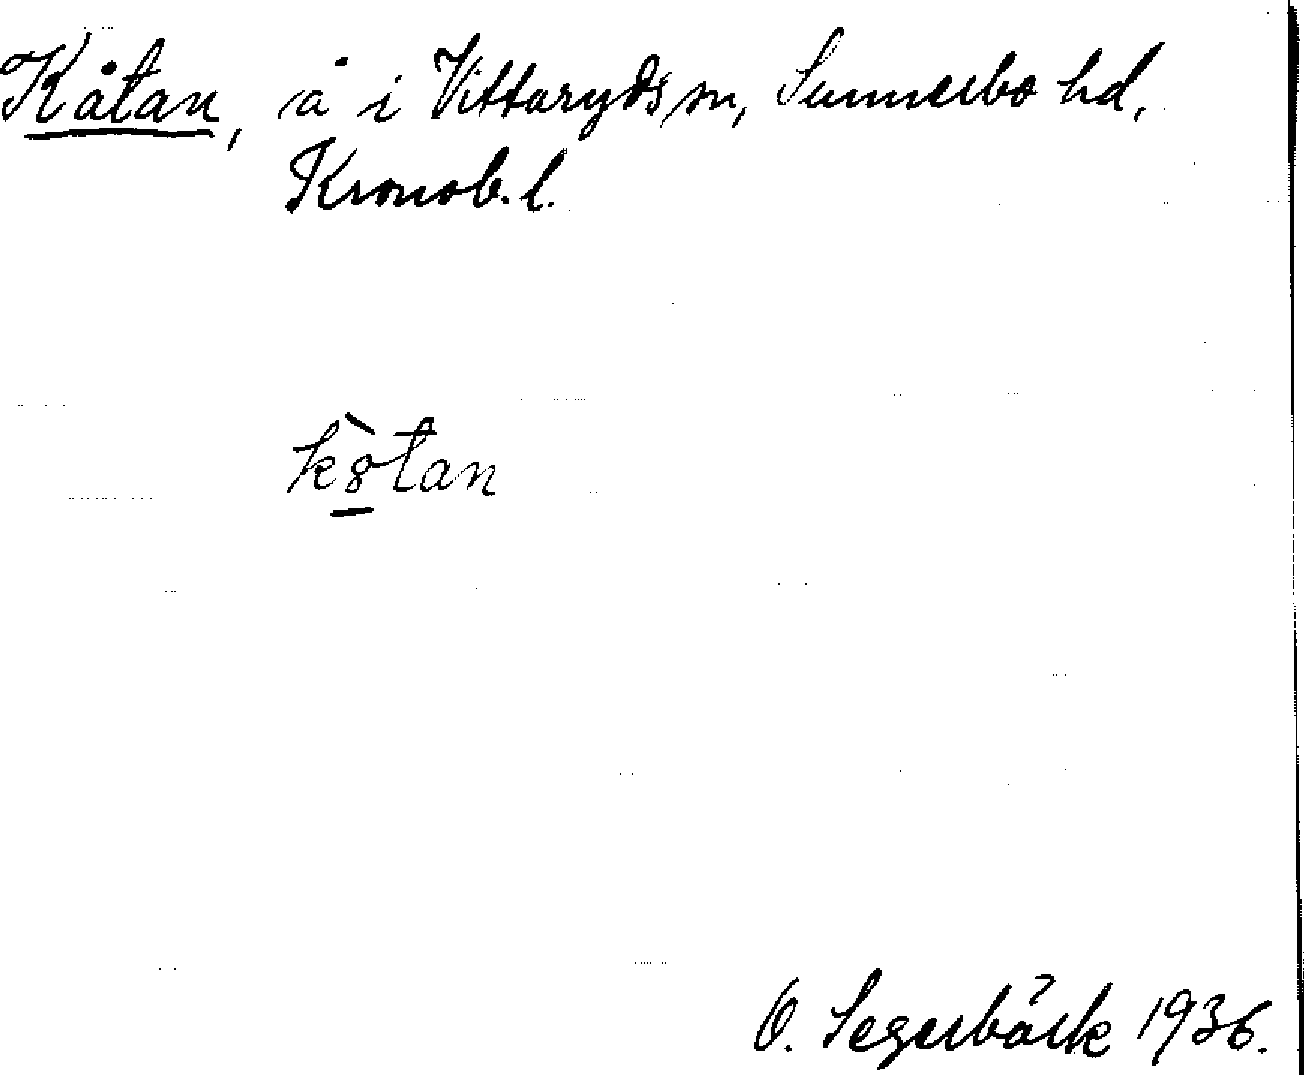 Kåtan, å i Vittaryds sn, Sunnerbo hd,
Kronob. l.
k8̱̀tan
O. Segerbäck 1936.